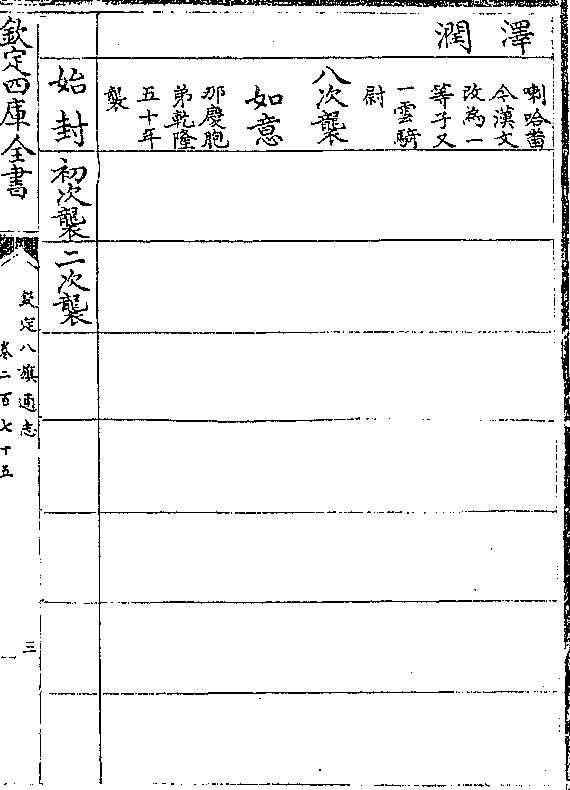 澤潤
喇哈畨
今漢文
改為一
等子又
一雲騎
尉
八次襲
如意
那慶胞
弟乾隆
五十年
襲
始封
初次襲
二次襲
欽定四庫全書
欽定八旗通志
卷二百七十五
三